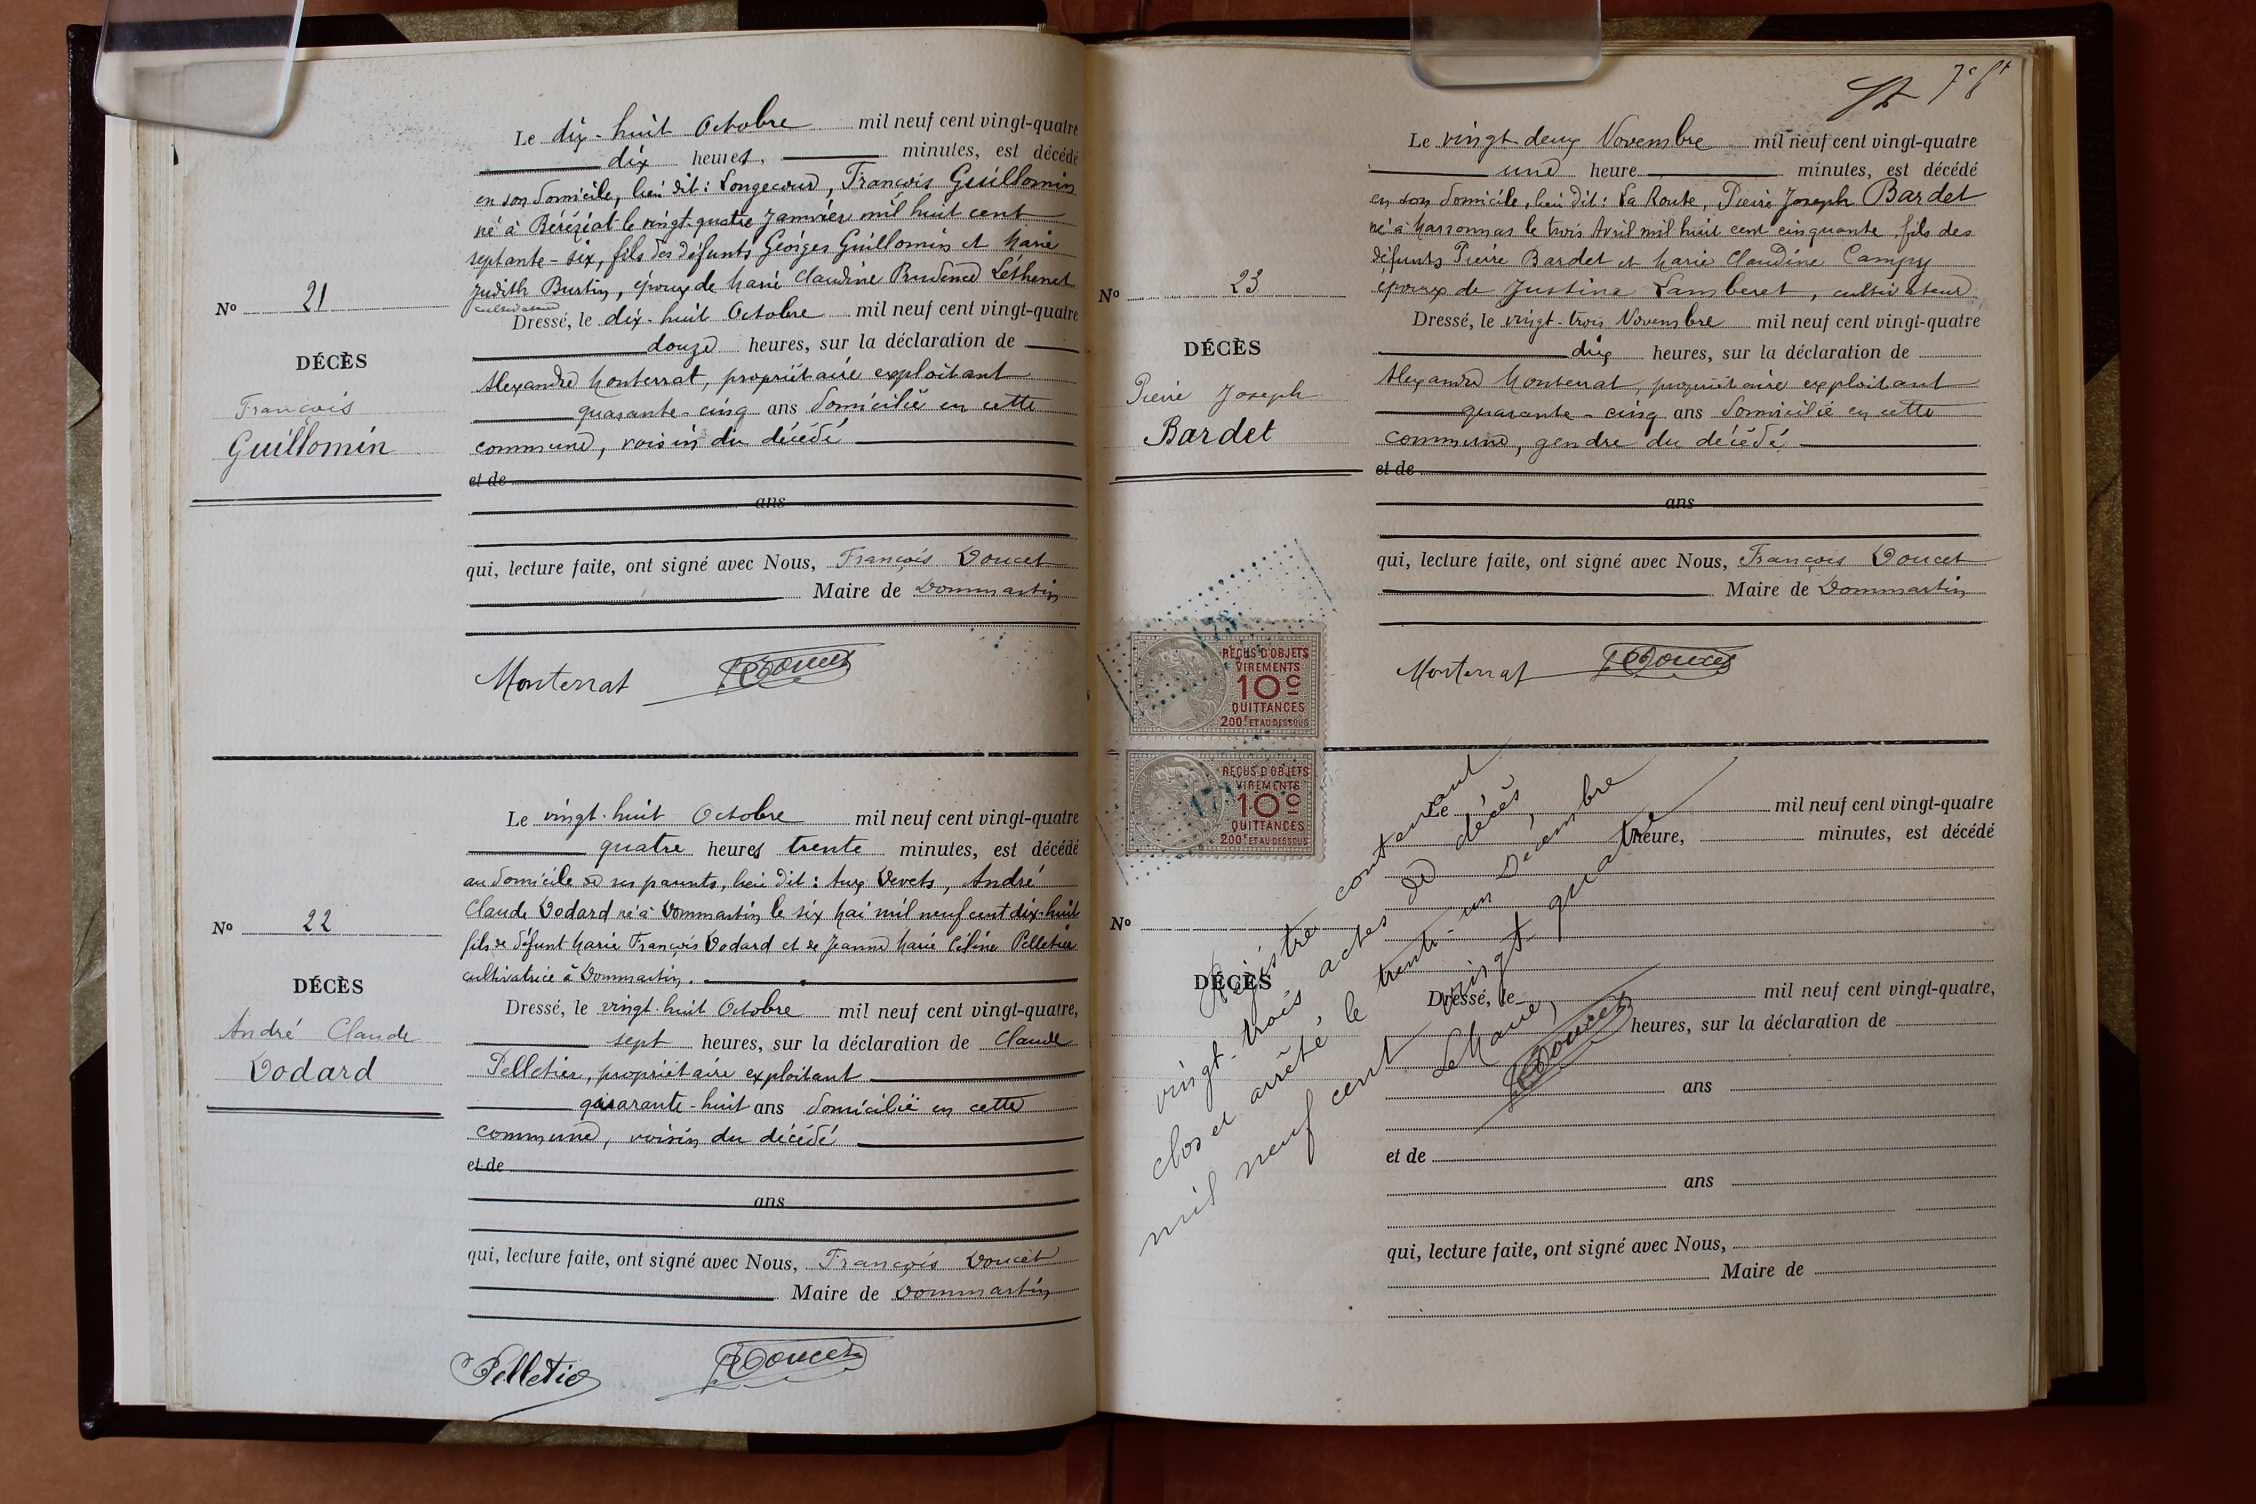 Le dix-huit Octobre mil neuf cent vingt-quatre
dix heures, minutes, est décédé
en son domicile, lieu dit : Longecour, François Guillomin
né à Béréziat le vingt-quatre Janvier mil huit cent
septante-six, fils des défunts Georges Guillomin et Marie
Judith Burtin, époux de Marie Claudine Prudence Léthenet
cultivateur
Dressé, le dix-huit Octobre mil neuf cent vingt-quatre
douze heures, sur la déclaration de
Alexandre Monterrat, propriétaire exploitant
quarante-cinq ans domicilié en cette
commune, voisin du décédé
et de
ans
qui, lecture faite, ont signé avec Nous, François Doucet
Maire de Dommartin
No 21
DÉCÈS
François
Guillomin
Monterrat Doucet
Le vingt-huit Octobre mil neuf cent vingt-quatre
quatre heures trente minutes, est décédé
au domicile de ses parents, lieu dit : Aux Devets, André
Claude Dodard né à Dommartin le six Mai mil neuf cent dix-huit
fils de défunt Marie François Dodard et de Jeanne Marie Céline Pelletier
cultivatrice à Dommartin.
Dressé, le vingt-huit Octobre mil neuf cent vingt-quatre,
sept heures, sur la déclaration de Claude
Pelletier, propriétaire exploitant
quarante-huit ans domicilié en cette
commune, voisin du décédé
et de
ans
qui, lecture faite, ont signé avec Nous, François Doucet
Maire de Dommartin
No 22
DÉCÈS
André Claude
Dodard
Pelletier Doucet
7e ft
Le vingt deux Novembre mil neuf cent vingt-quatre
une heure minutes, est décédé
en son domicile, lieu dit : La Route, Pierre Joseph Bardet
né à Marsonnas le trois Avril mil huit cent cinquante, fils des
défunts Pierre Bardet et Marie Claudine Campy
époux de Justine Lamberet, cultivateur
Dressé, le vingt-trois Novembre mil neuf cent vingt-quatre
dix heures, sur la déclaration de
Alexandre Monterrat, propriétaire exploitant
quarante-cinq ans domicilié en cette
commune, gendre du décédé
et de
ans
qui, lecture faite, ont signé avec Nous, François Doucet
Maire de Dommartin
No 23
DÉCÈS
Pierre Joseph
Bardet
Monterrat Doucet
REÇUS D'OBJETS
VIREMENTS
10c
QUITTANCES
200F ET AU DESSOUS
REÇUS D'OBJETS
VIREMENTS
10c
QUITTANCES
200F ET AU DESSOUS
Le mil neuf cent vingt-quatre
heure, minutes, est décédé
No
DÉCÈS
Dressé, le mil neuf cent vingt-quatre,
heures, sur la déclaration de
ans
et de
ans
qui, lecture faite, ont signé avec Nous,
Maire de
Registre contenant
vingt-trois actes de décès,
clos et arrêté, le trente-un Décembre
mil neuf cent vingt quatre
Le Maire,
Doucet